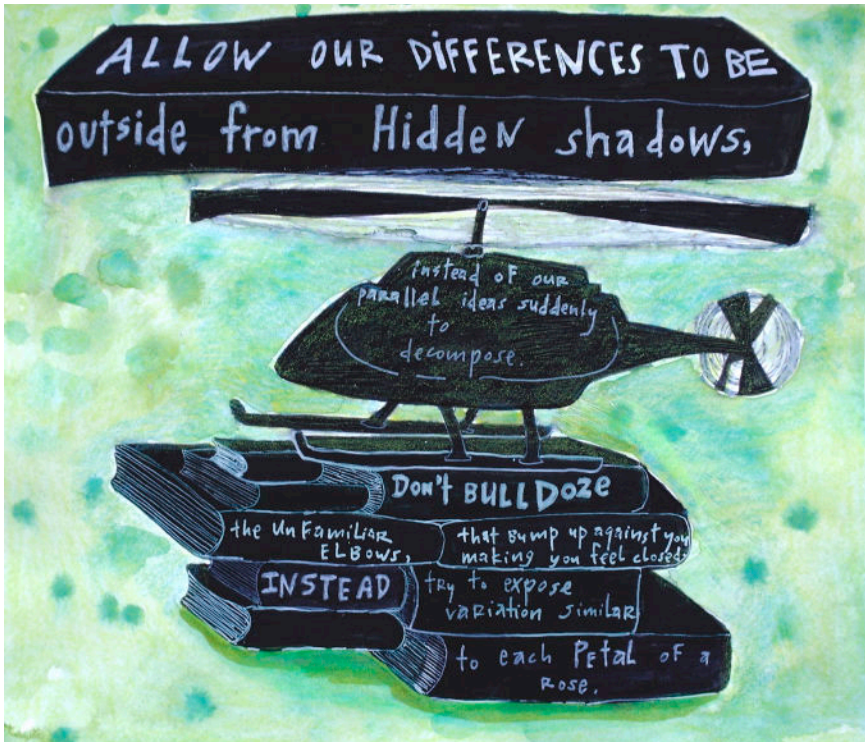 ALLOW OUR DIFFERENCES TO BE
outside from HiddeN shadows,
instead of our
parallel ideas suddenly
to
decompose.
DON't BULLDoze
the UnFamiliar
ELBOWS,
that Bump up against you
making you feel closed.
INSTEAD
try to expose
variation similar
to each Petal of a
Rose.